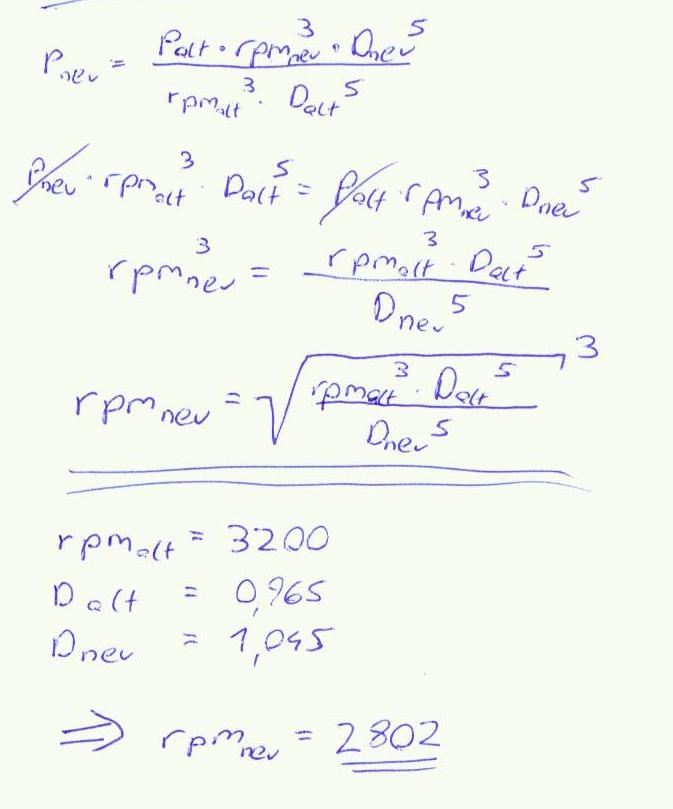 P_neu = (P_alt · rpm_neu^3 · D_neu^5) / (rpm_alt^3 · D_alt^5)
P_neu · rpm_alt^3 · D_alt^5 = P_alt · rpm_neu^3 · D_neu^5
rpm_neu^3 = (rpm_alt^3 · D_alt^5) / D_neu^5
rpm_neu = √((rpm_alt^3 · D_alt^5) / D_neu^5) ^3
rpm_alt = 3200
D_alt = 0,965
D_neu = 1,045
⇒ rpm_neu = 2802